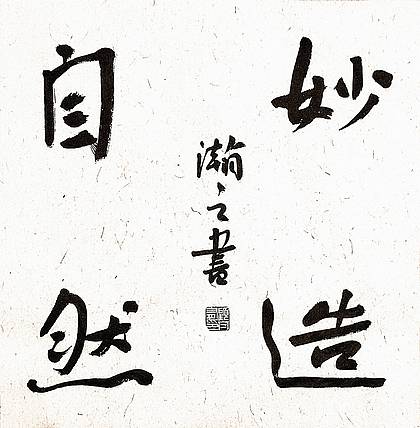 妙造
自然
瀚之書